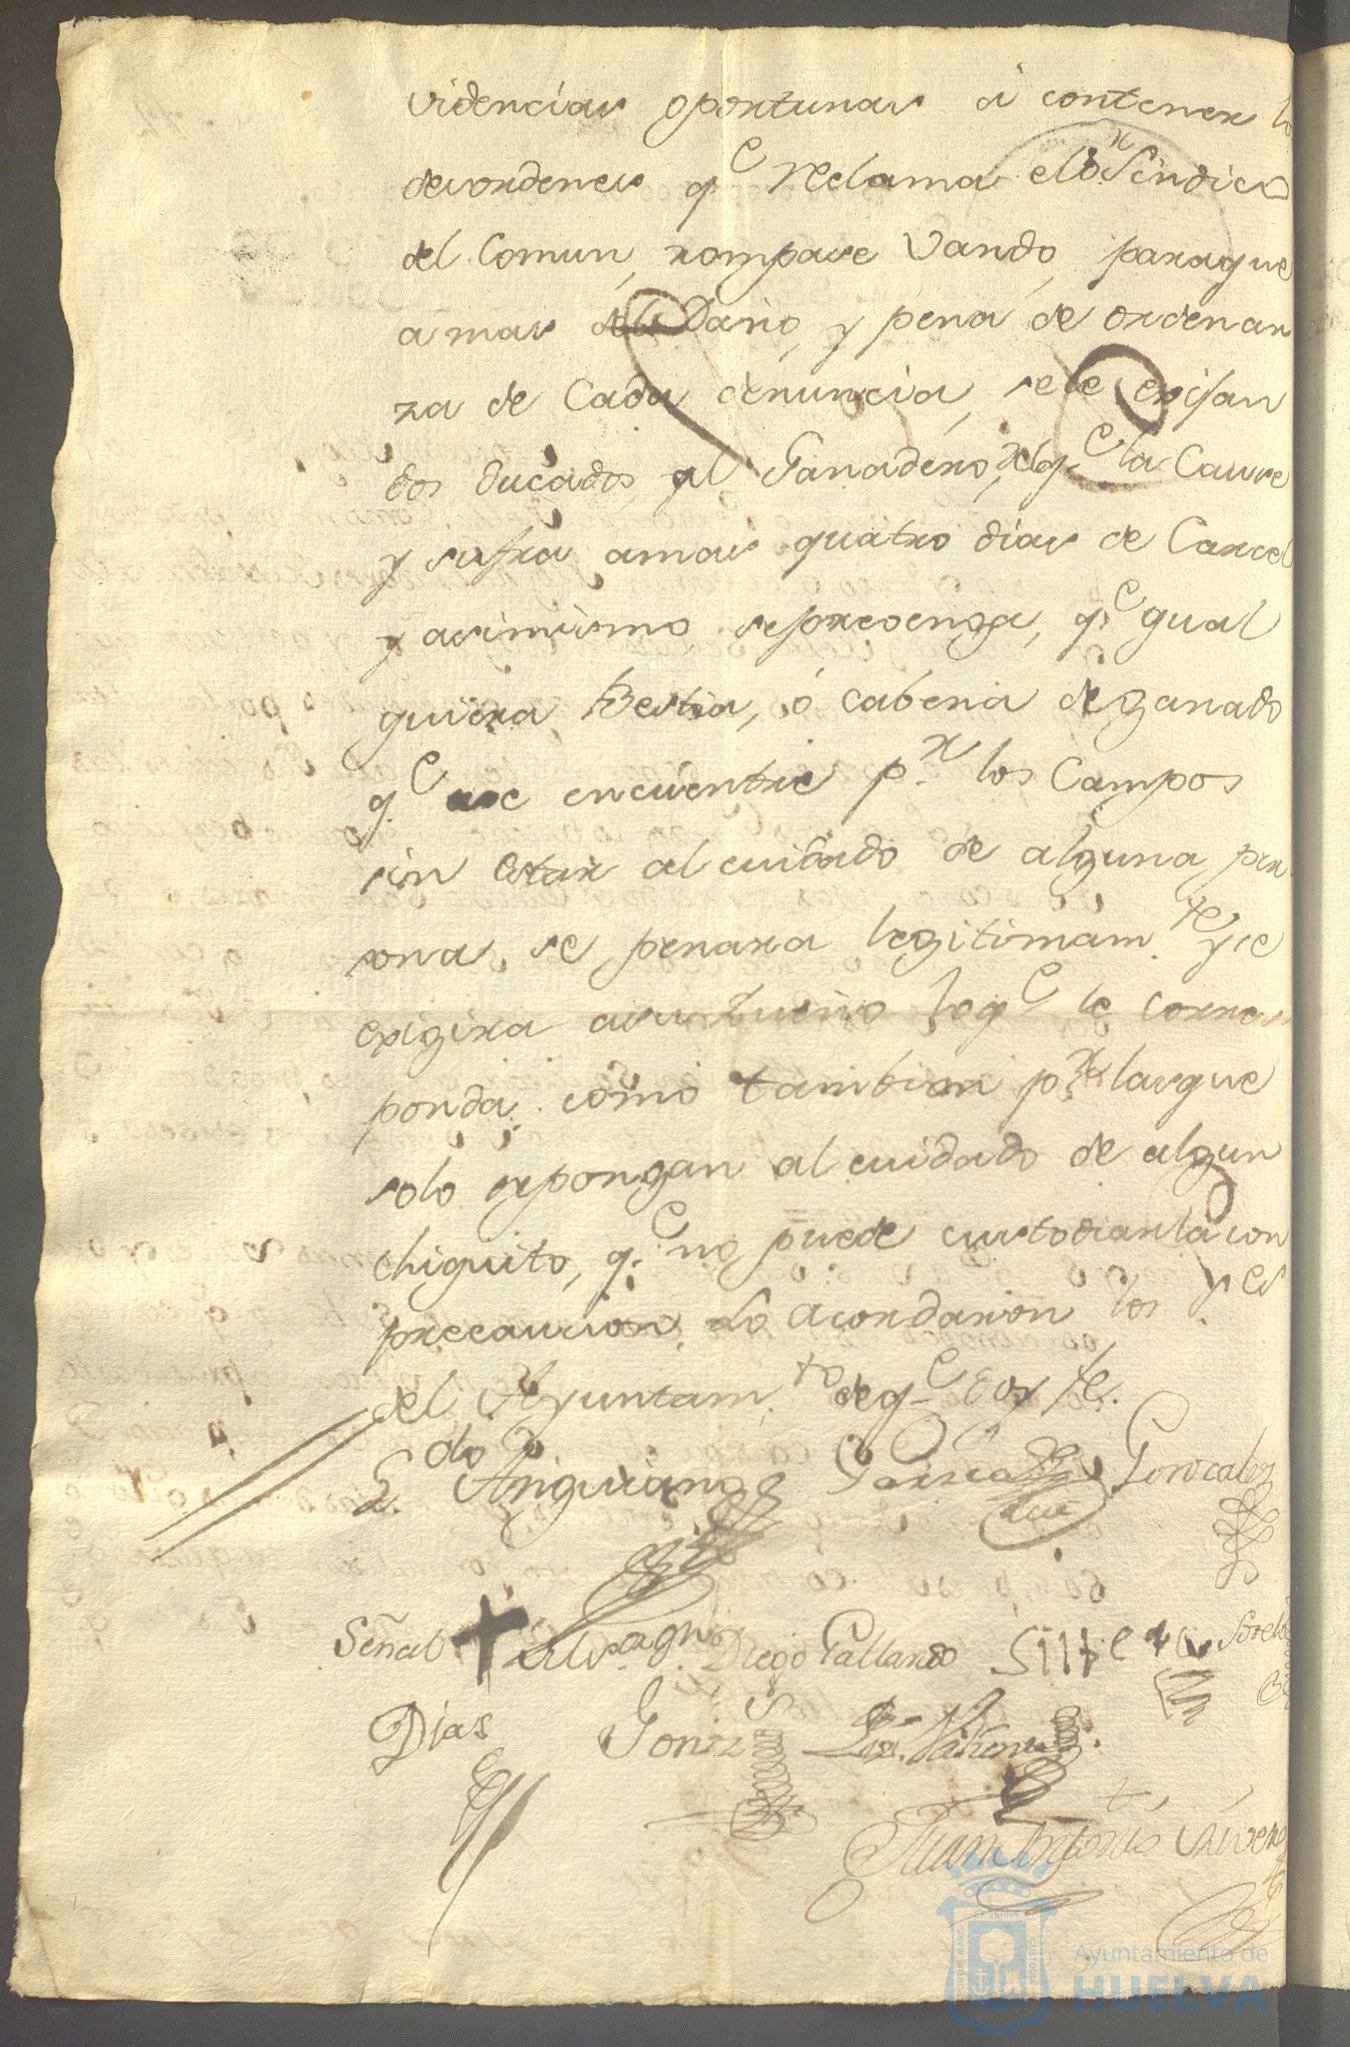 videncias oportunas á contener lo
desordenes q.e reclama el S.r Sindico
del Comun, rompase Vando, paraque
a mas del Daño, y pena de ordenan
za de Cada denuncia, sele exijan
dos ducados al Ganadero, delq.e la Cause
y sufra amas quatro dias de Carcel
y asimismo seprevenga, q.e qual
quiera Bestia, ó cabeza de ganado
q.e se encuentre p.r los Campos
sin estar al cuidado de alguna per
sona, se penara legitimam.te y se
exigira asu Dueño loq.e le corres
ponda, como tambien p.r lasque
solo expongan al cuidado de algun
chiquito, q.e no puede custodiarla con
precaucion. Lo acordaron los S.res
del Ayuntam.to deq.e doy fe.
L.do Anguiano Garcia Gonzales
Señal + Diego Gallardo Silbera
Dias Gonz
Juan Antonio Rivera
Ayuntamiento de
HUELVA